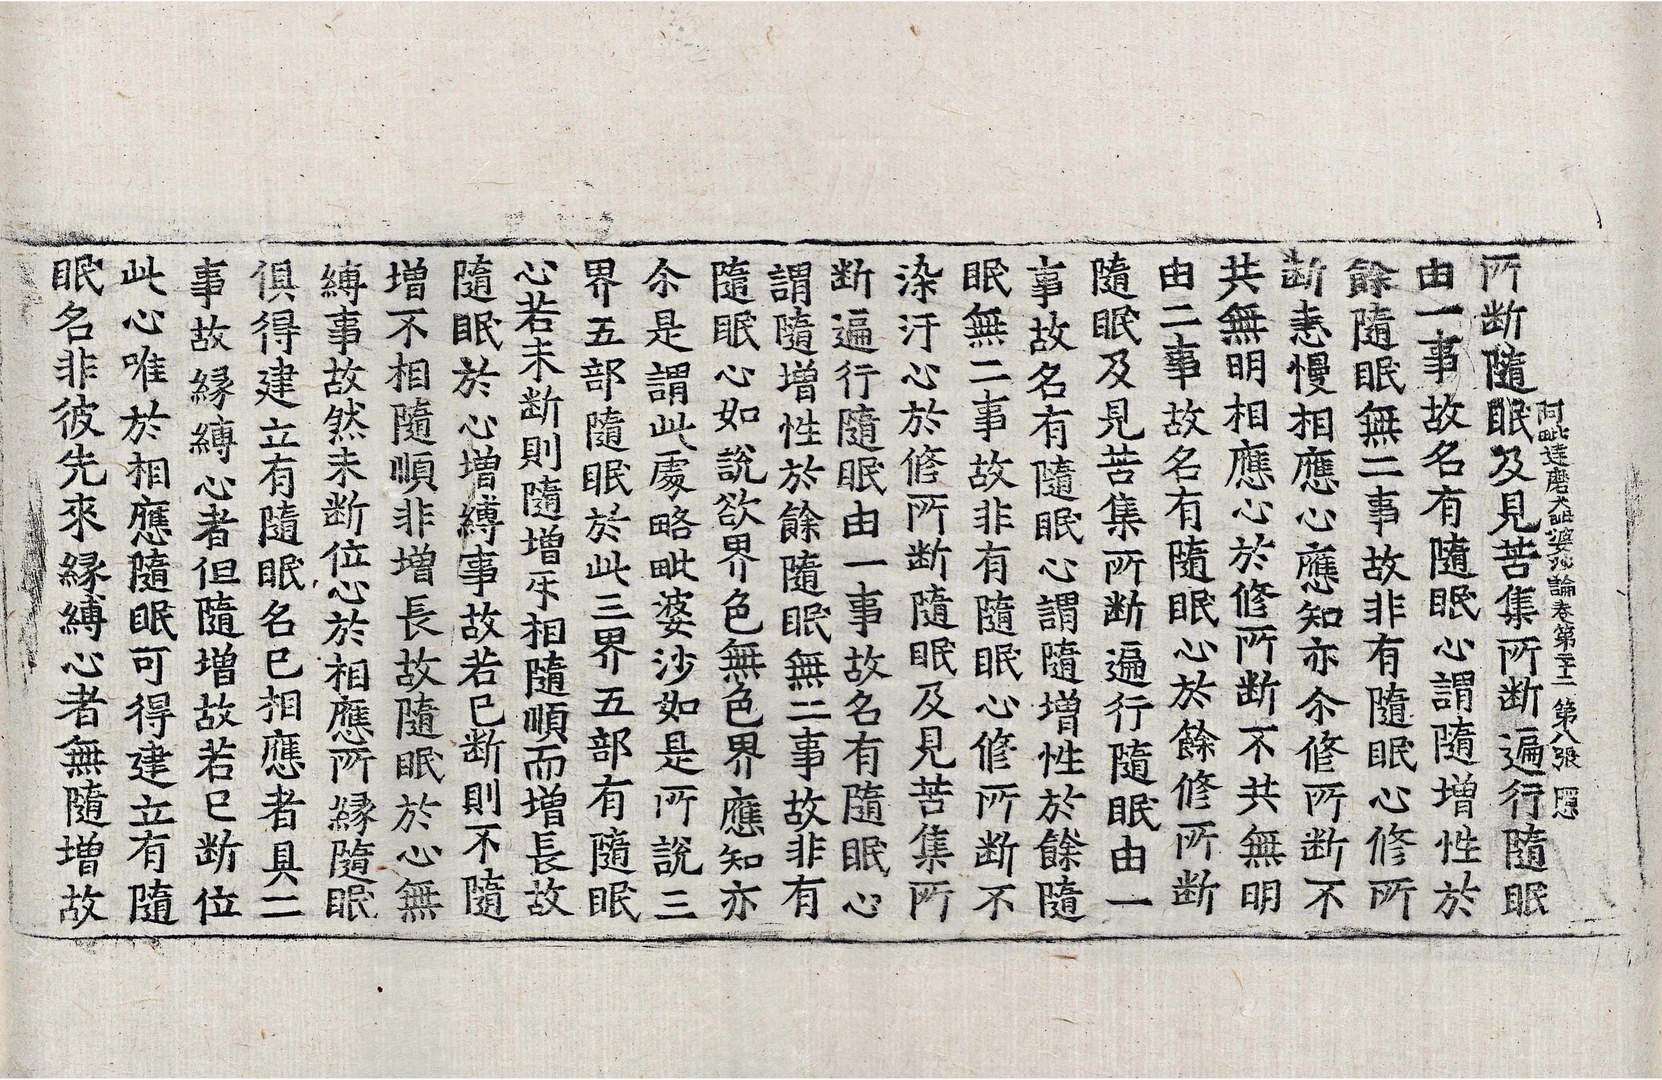 阿毗達磨大毗婆沙論卷第二十二 第八張 隱
所断隨眠及見苦集所断遍行隨眠
由一事故名有隨眠心謂隨增性於
餘隨眠無二事故非有隨眠心修所
断恚慢相應心應知亦尒修所断不
共無明相應心於修所断不共無明
由二事故名有隨眠心於餘修所断
隨眠及見苦集所断遍行隨眠由一
事故名有隨眠心謂隨增性於餘隨
眠無二事故非有隨眠心修所断不
染汙心於修所断隨眠及見苦集所
断遍行隨眠由一事故名有隨眠心
謂隨增性於餘隨眠無二事故非有
隨眠心如說欲界色無色界應知亦
尒是謂此處略毗婆沙如是所說三
界五部隨眠於此三界五部有隨眠
心若未断則隨增㸦相隨順而增長故
隨眠於心增縛事故若已断則不隨
增不相隨順非增長故隨眠於心無
縛事故然未断位心於相應所緣隨眠
俱得建立有隨眠名已相應者具二
事故緣縛心者但隨增故若已断位
此心唯於相應隨眠可得建立有隨
眠名非彼先來緣縛心者無隨增故